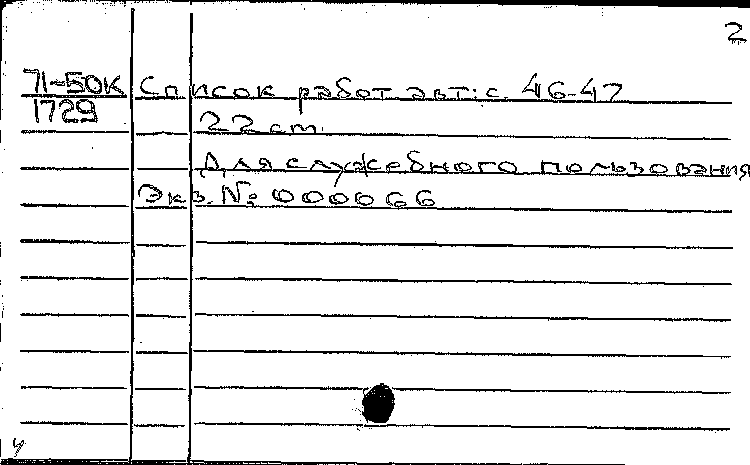 2
71-50к Список работ авт: с. 46-47
1729 22 см.
Для служебного пользования
Экз. № 000066
4